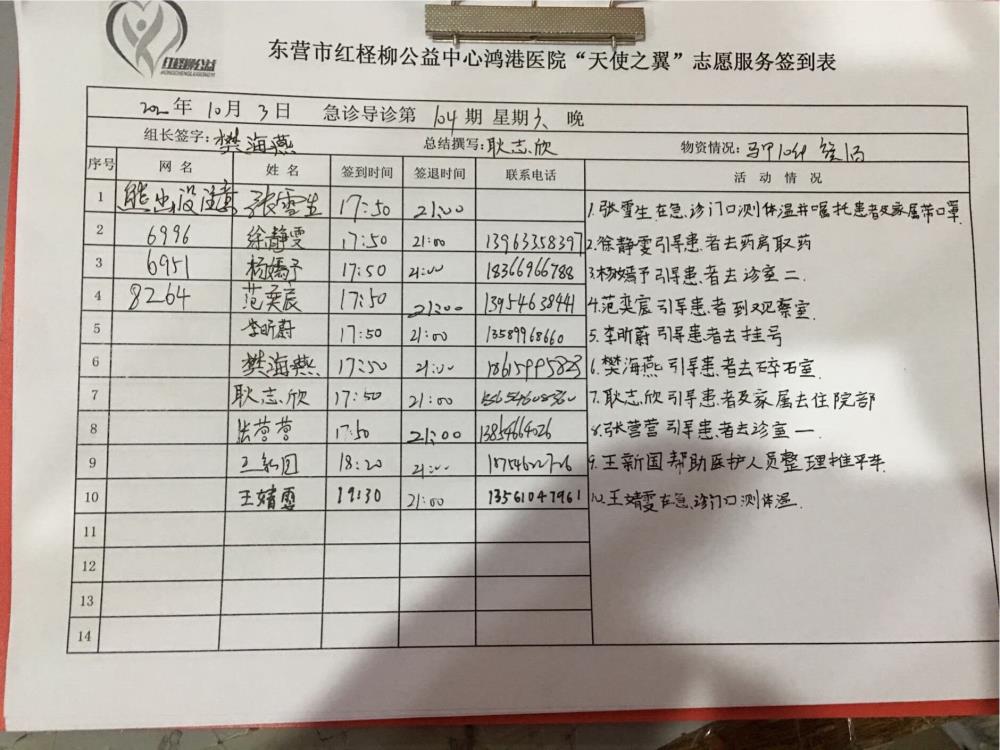 红柽柳公益
HONGCHENGLIUGONGYI
东营市红柽柳公益中心鸿港医院“天使之翼”志愿服务签到表
年 10月 3日 急诊导诊第 104 期 星期六 晚
组长签字：樊海燕 总结撰写：耿志欣 物资情况：马甲10件
序号 网 名 姓 名 签到时间 签退时间 联系电话 活 动 情 况
1 熊出没注意 张雪生 17:50 21:00 1.张雪生在急诊门口测体温并嘱托患者及家属带口罩
2 6996 徐静雯 17:50 21:00 13963358397 2.徐静雯引导患者去药房取药
3 6951 杨嫣予 17:50 21:00 18366966788 3.杨嫣予引导患者去诊室二.
4 8264 范奕宸 17:50 21:00 13954638441 4.范奕宸引导患者到观察室.
5 李昕蔚 17:50 21:00 13589968660 5.李昕蔚引导患者去挂号
6 樊海燕 17:50 21:00 18615995823 6.樊海燕引导患者去碎石室.
7 耿志欣 17:50 21:00 7.耿志欣引导患者及家属去住院部
8 张营营 17:50 21:00 13854664026 8.张营营引导患者去诊室一.
9 王新国 18:20 21:00 9.王新国帮助医护人员整理推平车
10 王婧雯 19:30 21:00 13561047961 10.王婧雯在急诊门口测体温.
11
12
13
14